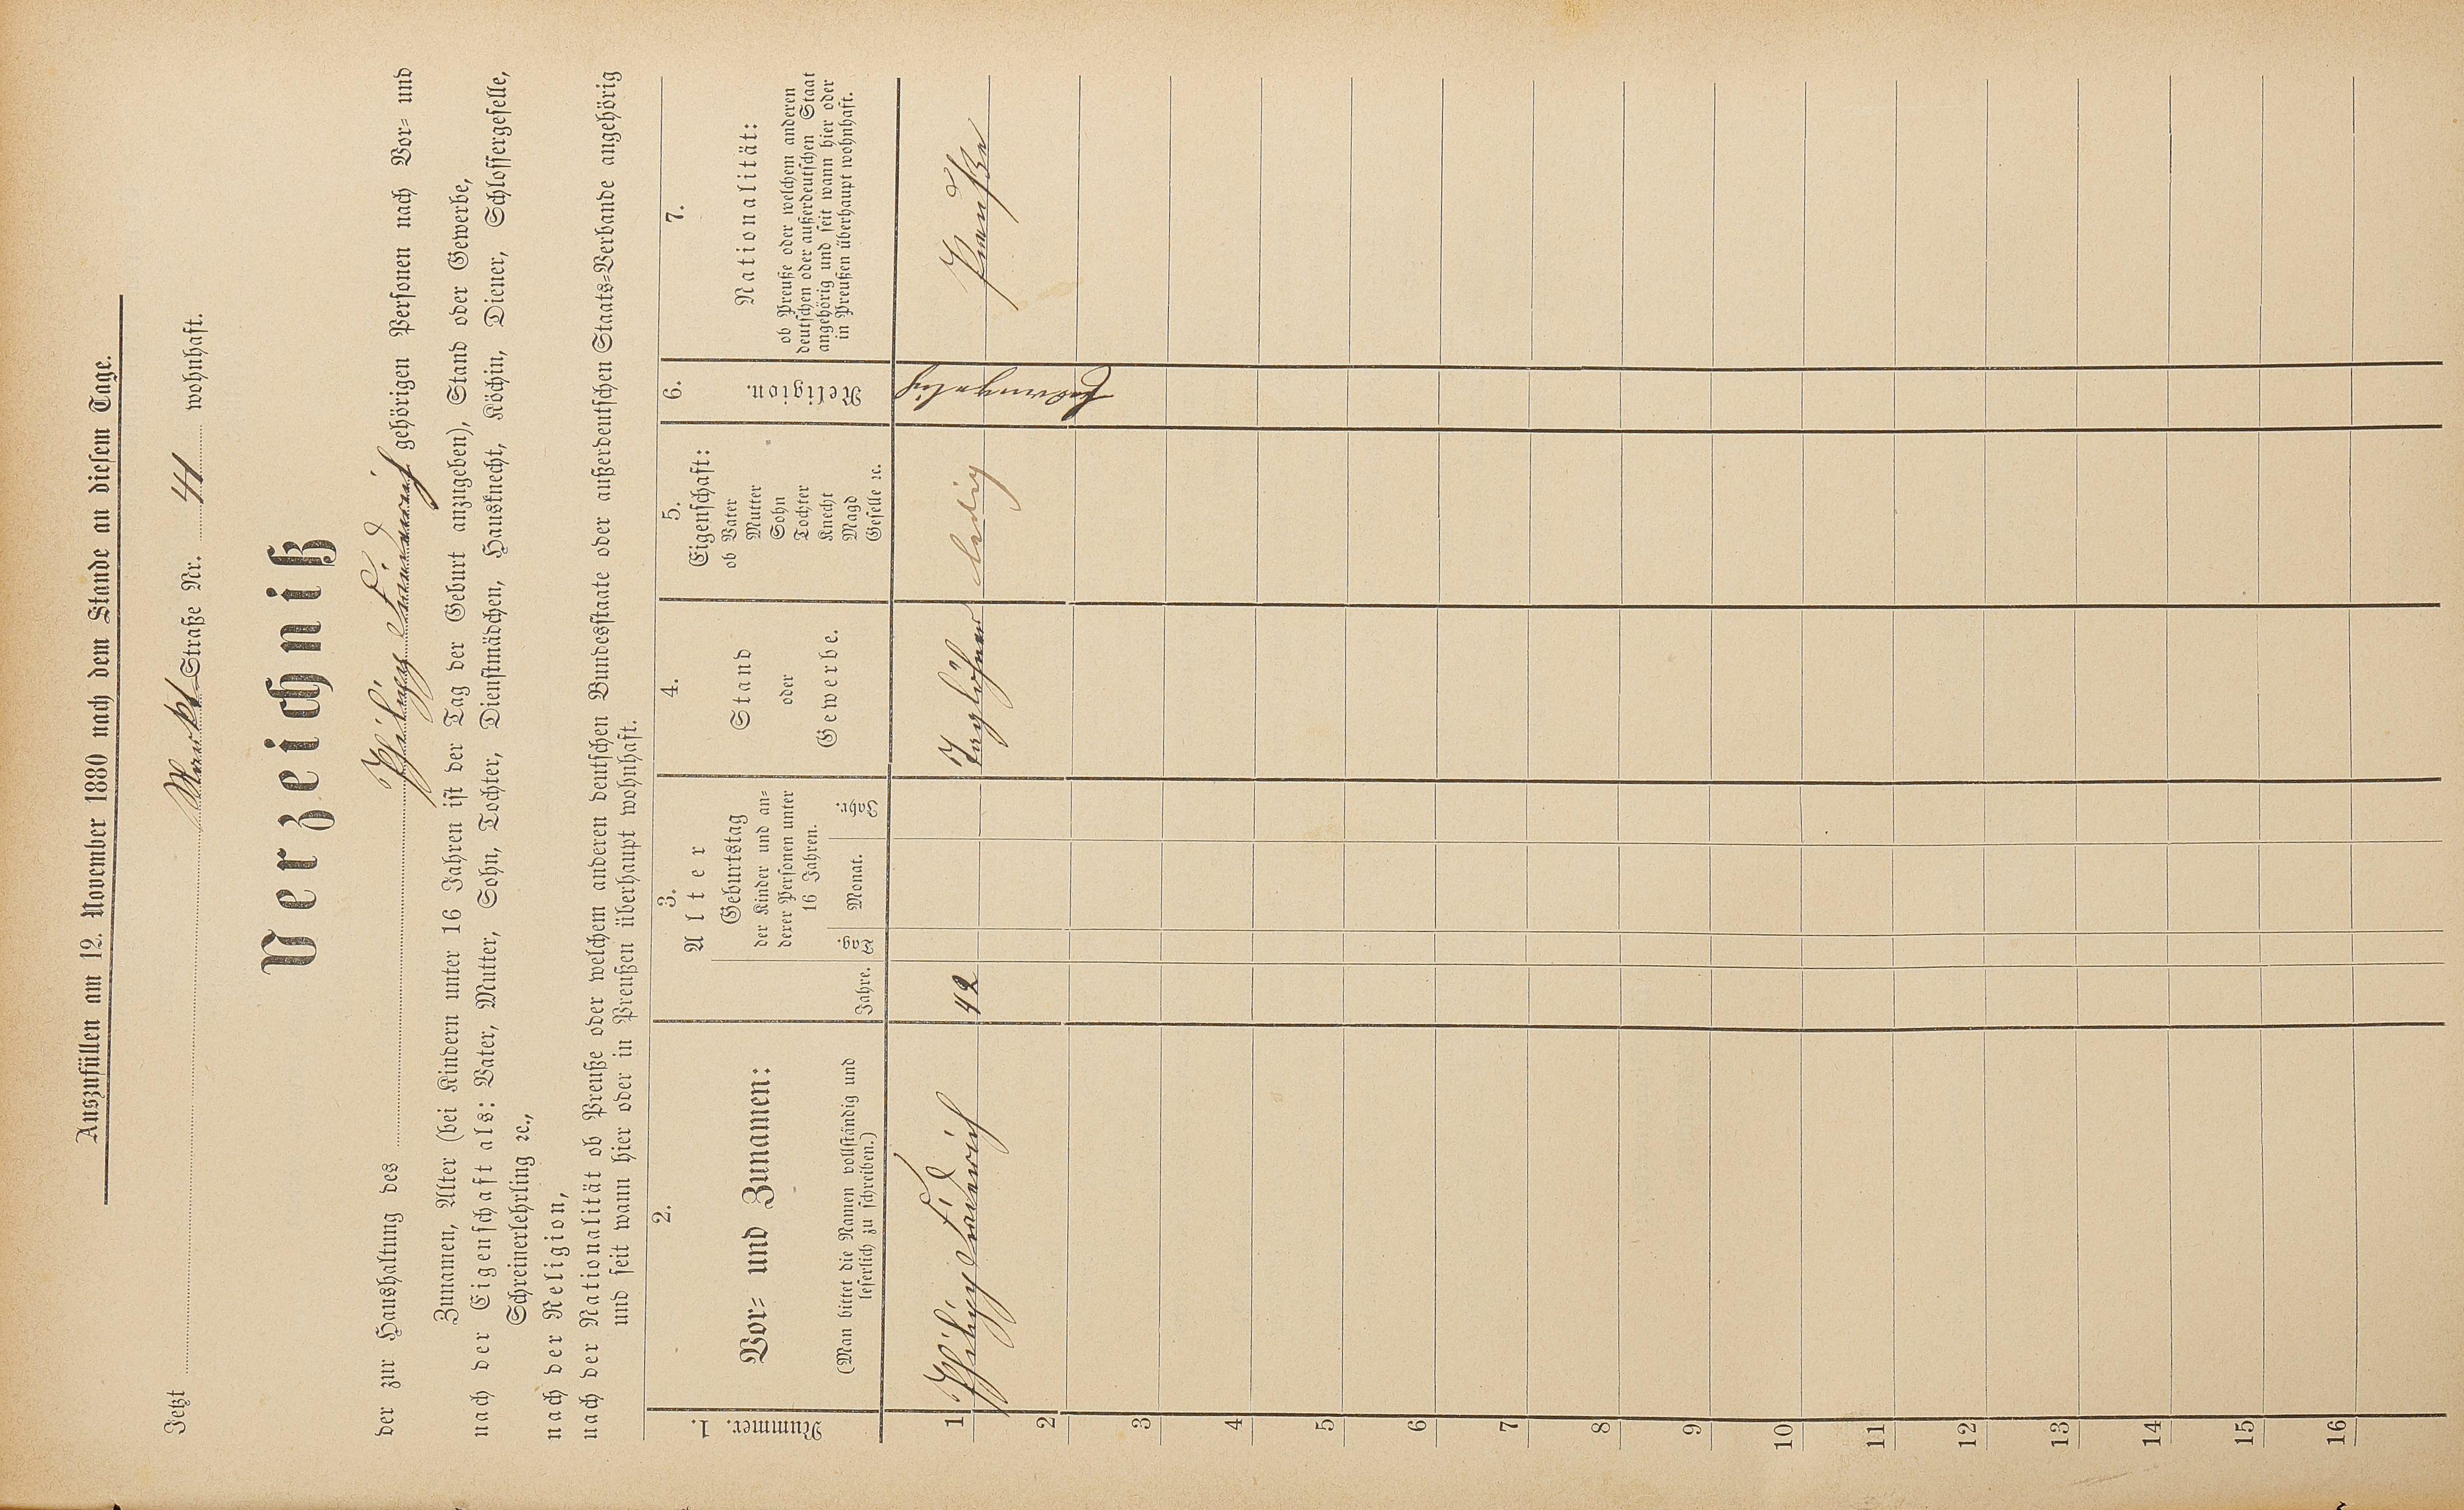 Auszufüllen am 12. November 1880 nach dem Stande an diesem Tage.
Jetzt Markt Straße Nr. 41 wohnhaft.
Verzeichniß
der zur Haushaltung des Philipp Friederich gehörigen Personen nach Vor- und
Zunamen, Alter (bei Kindern unter 16 Jahren ist der Tag der Geburt anzugeben), Stand oder Gewerbe,
nach der Eigenschaft als: Vater, Mutter, Sohn, Tochter, Dienstmädchen, Hausknecht, Köchin, Diener, Schlossergeselle,
Schreinerlehrling ꝛc.,
nach der Religion,
nach der Nationalität ob Preuße oder welchem anderen deutschen Bundesstaate oder außerdeutschen Staats-Verbande angehörig
und seit wann hier oder in Preußen überhaupt wohnhaft.
1.
Nummer.
2.
Vor- und Zunamen:
(Man bittet die Namen vollständig und
leserlich zu schreiben.)
3.
Alter
Geburtstag
der Kinder und an-
derer Personen unter
16 Jahren.
Jahre. Tag. Monat. Jahr.
4.
Stand
oder
Gewerbe.
5.
Eigenschaft:
ob Vater
Mutter
Sohn
Tochter
Knecht
Magd
Geselle ꝛc.
6.
Religion.
7.
Nationalität:
ob Preuße oder welchem anderen
deutschen oder außerdeutschen Staat
angehörig und seit wann hier oder
in Preußen überhaupt wohnhaft.
1 Philipp Friederich 42 Taglöhner ledig Evangelisch Preuße
2
3
4
5
6
7
8
9
10
11
12
13
14
15
16